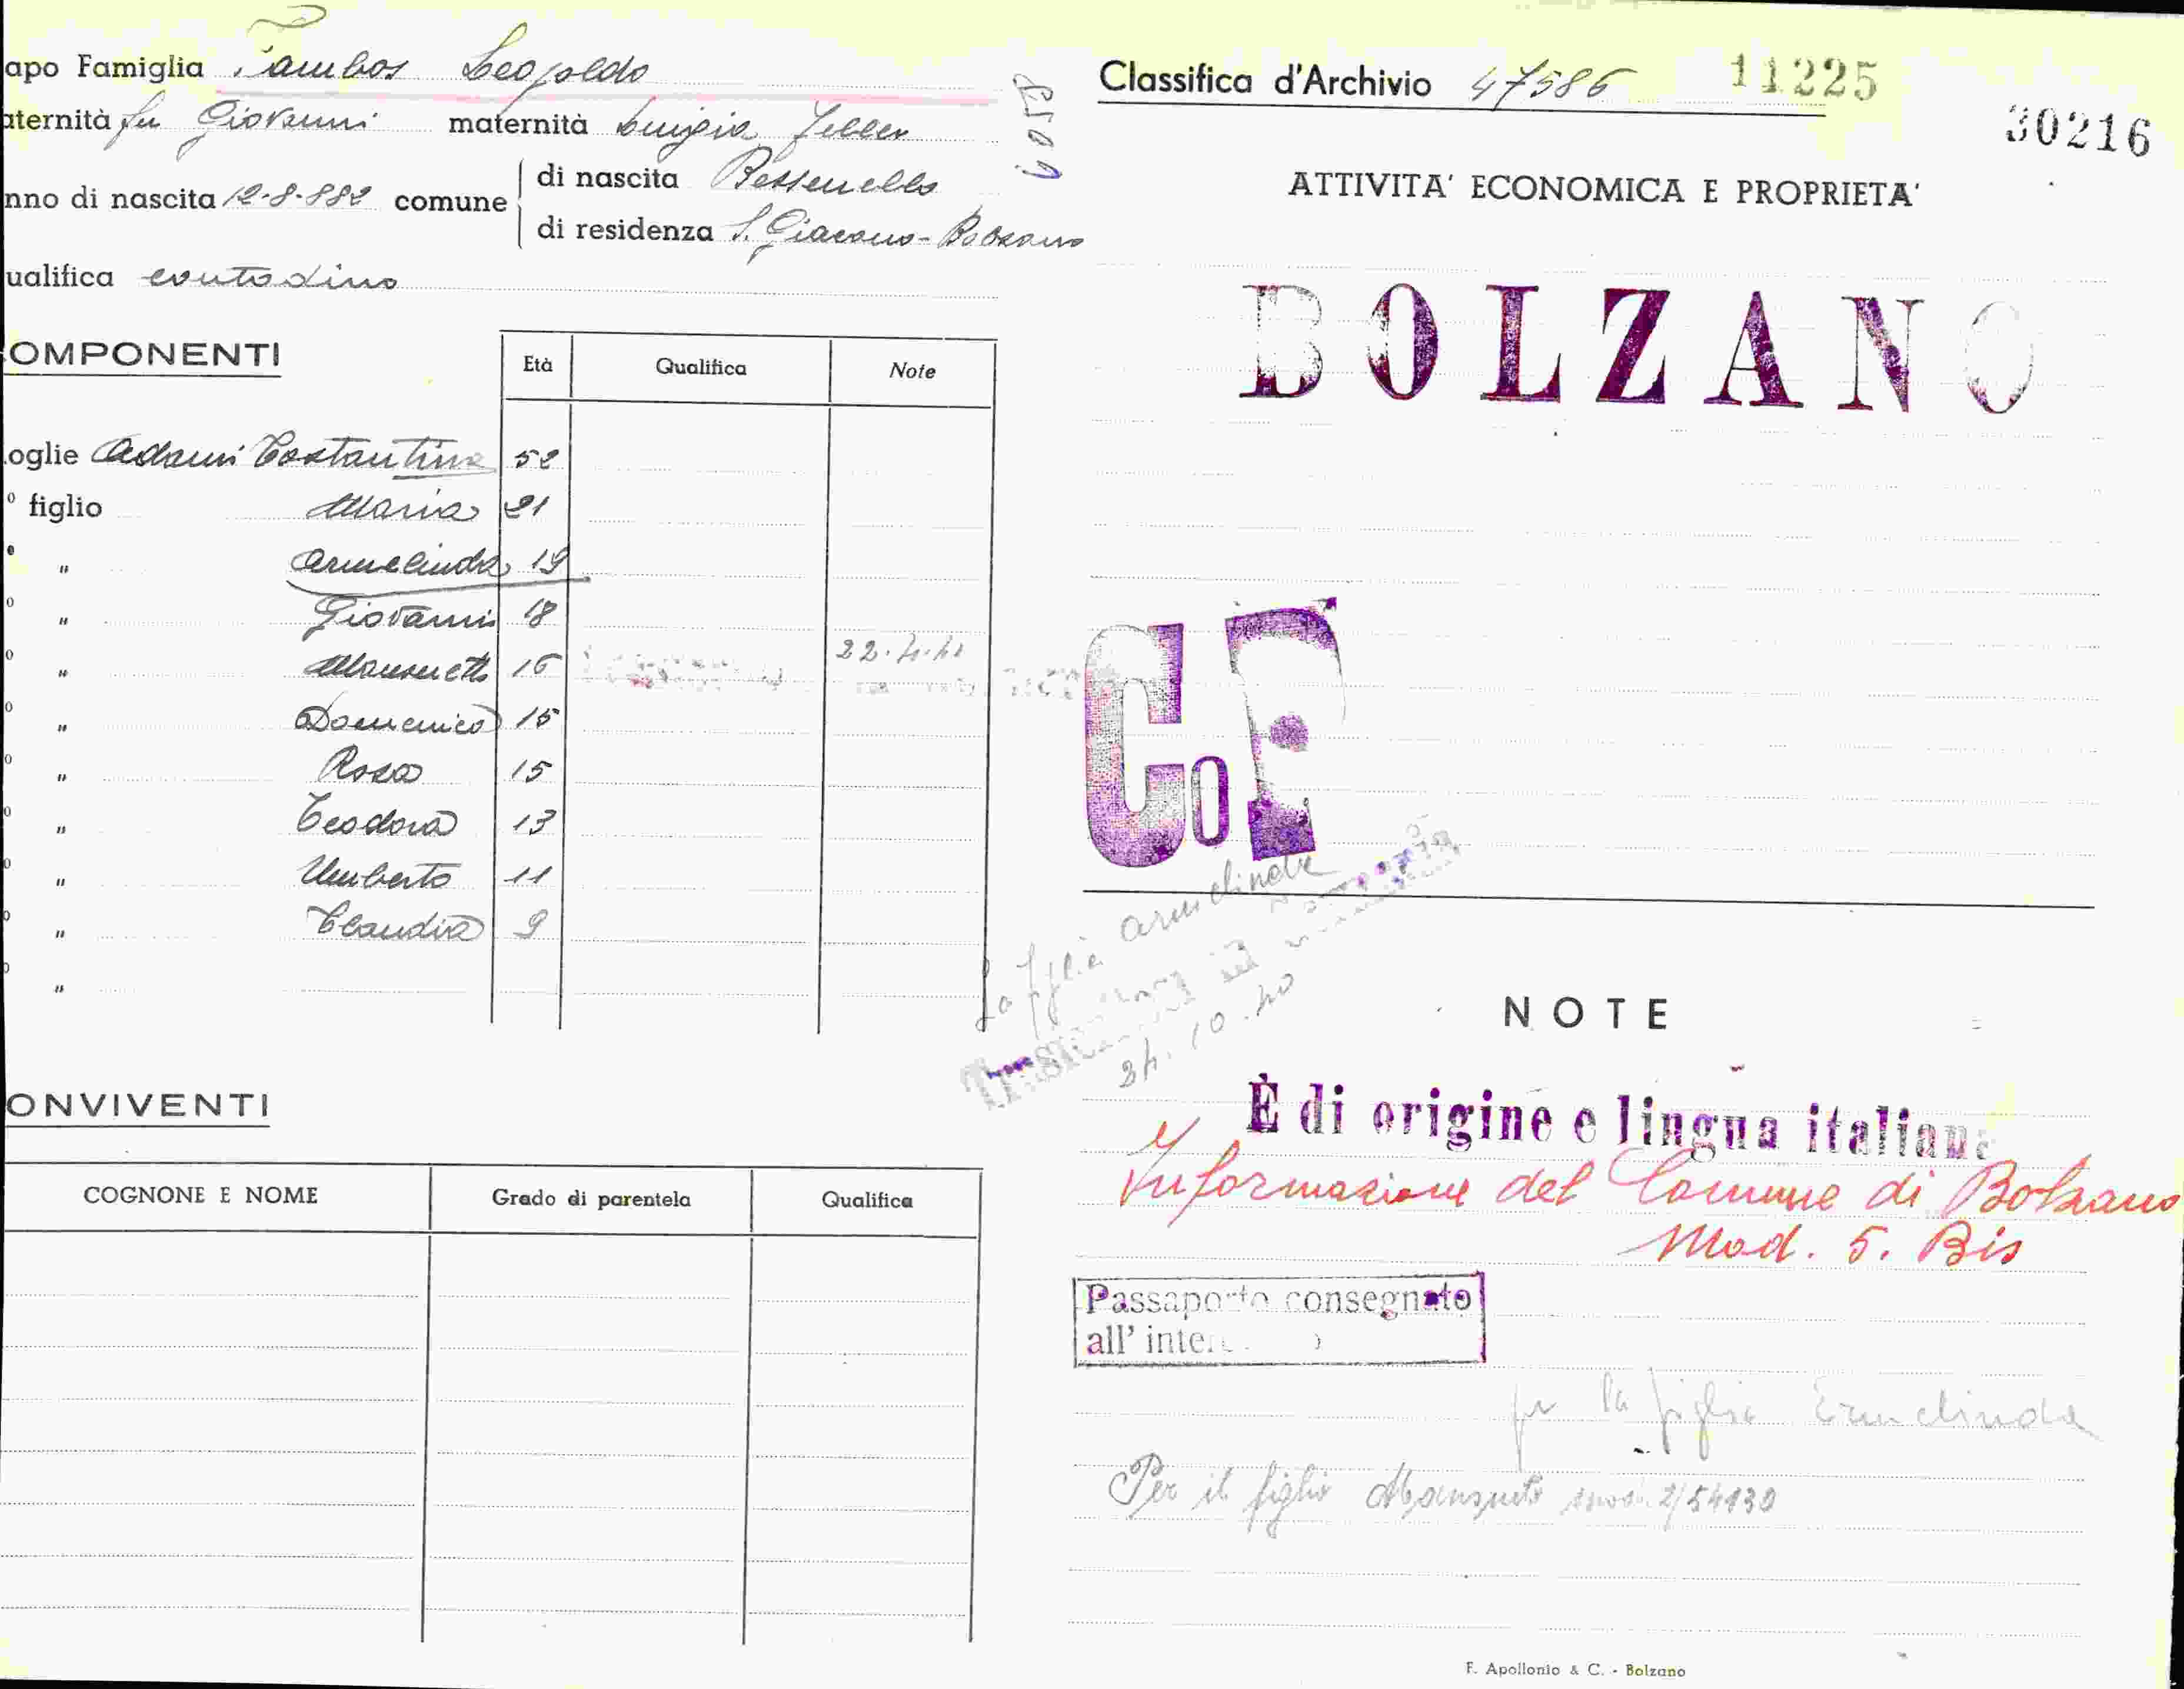 apo Famiglia Tambos Leopoldo
aternità fu Giovanni maternità Luigia Feller
nno di nascita 12-8-882 comune di nascita Bessenello
di residenza S. Giacomo - Bolzano
ualifica contadino
OMPONENTI Età Qualifica Note
oglie Adami Costantina 52
° figlio Maria 21
" Armelinda 19
" Giovanni 18
" Mansueto 16 22.4.41
" Domenico 15
" Rosa 15
" Teodora 13
" Umberto 11
" Claudia 9
"
ONVIVENTI
COGNONE E NOME Grado di parentela Qualifica
Classifica d'Archivio 47586 11225
30216
ATTIVITA' ECONOMICA E PROPRIETA'
BOLZANO
CoF
La figlia Armelinda
24.10.40
NOTE
È di origine e lingua italiana
Informazione del Comune di Bolzano
Mod. 5. Bis
Passaporto consegnato
all'
per la figlia Ermelinda
Per il figlio Mansueto mod. 2/54130
F. Apollonio & C. - Bolzano